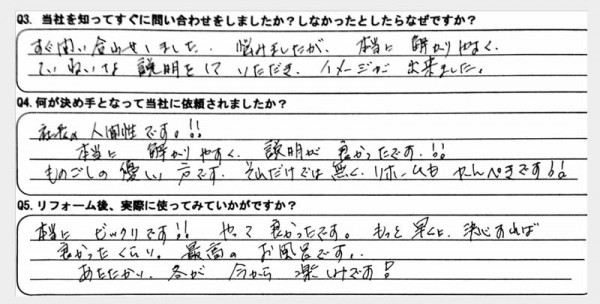 Q3. 当社を知ってすぐに問い合わせをしましたか？しなかったとしたらなぜですか？
すぐ問い合わせしました. 悩みましたが、本当に 解かりやすく、
ていねいな 説明をして いただき、イメージが 出来ました。
Q4.何が決め手となって当社に依頼されましたか？
社長の 人間性です。!!
本当に 解かりやすく、説明が 良かったです.!!
ものごしの 優しい 方です. それだけでは 無く、リホームも かんぺきです!!
Q5.リフォーム後、実際に使ってみていかがですか？
本当に ビックリです!! やって 良かったです。もっと 早くに、決心すれば
良かったくらい。最高の お風呂です.
あたたかい、冬が 今から 楽しみです!